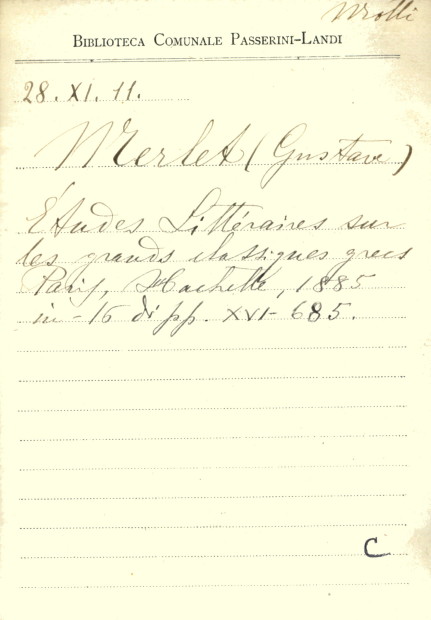 BIBLIOTECA COMUNALE PASSERINI-LANDI
28. XI. 11.
Merlet (Gustave)
Études Littéraires sur
les grands classiques grecs
Paris, Hachette, 1885
in-16 di pp. XVI-685.
C